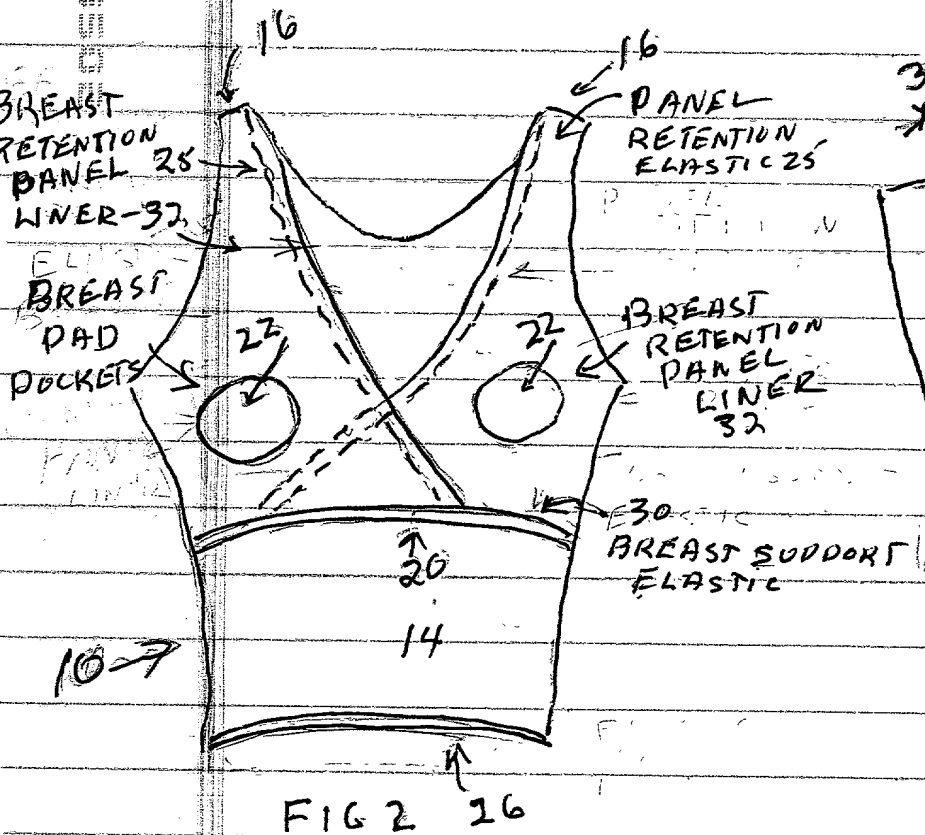 16
16
BREAST
RETENTION
PANEL
LINER-32
25
PANEL
RETENTION
ELASTIC 25
3
BREAST
PAD
POCKETS
22
22
BREAST
RETENTION
PANEL
LINER
32
30
BREAST SUPPORT
ELASTIC
20
14
10
26
FIG 2